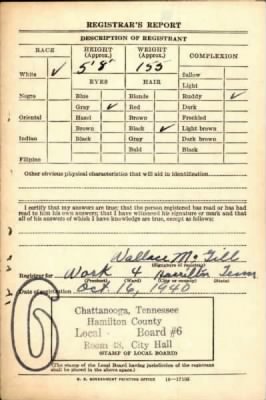 REGISTRAR'S REPORT
DESCRIPTION OF REGISTRANT
RACE HEIGHT (Approx.) WEIGHT (Approx.) COMPLEXION
White ✓ 5'8" 155 Sallow
EYES HAIR Light
Negro Blue Blonde Ruddy ✓
Gray ✓ Red Dark
Oriental Hazel Brown Freckled
Brown Black ✓ Light brown
Indian Black Gray Dark brown
Bald Black
Filipino
Other obvious physical characteristics that will aid in identification
I certify that my answers are true; that the person registered has read or has had
read to him his own answers; that I have witnessed his signature or mark and that
all of his answers of which I have knowledge are true, except as follows:
Wallace McGill
(Signature of registrar)
Registrar for 4 Hamilton Tenn
(Precinct) (Ward) (City or county) (State)
Date of registration Oct. 16, 1940
6
Chattanooga, Tennessee
Hamilton County
Local Board #6
Room 48, City Hall
STAMP OF LOCAL BOARD)
(The stamp of the Local Board having jurisdiction of the registrant
shall be placed in the above space.)
U. S. GOVERNMENT PRINTING OFFICE